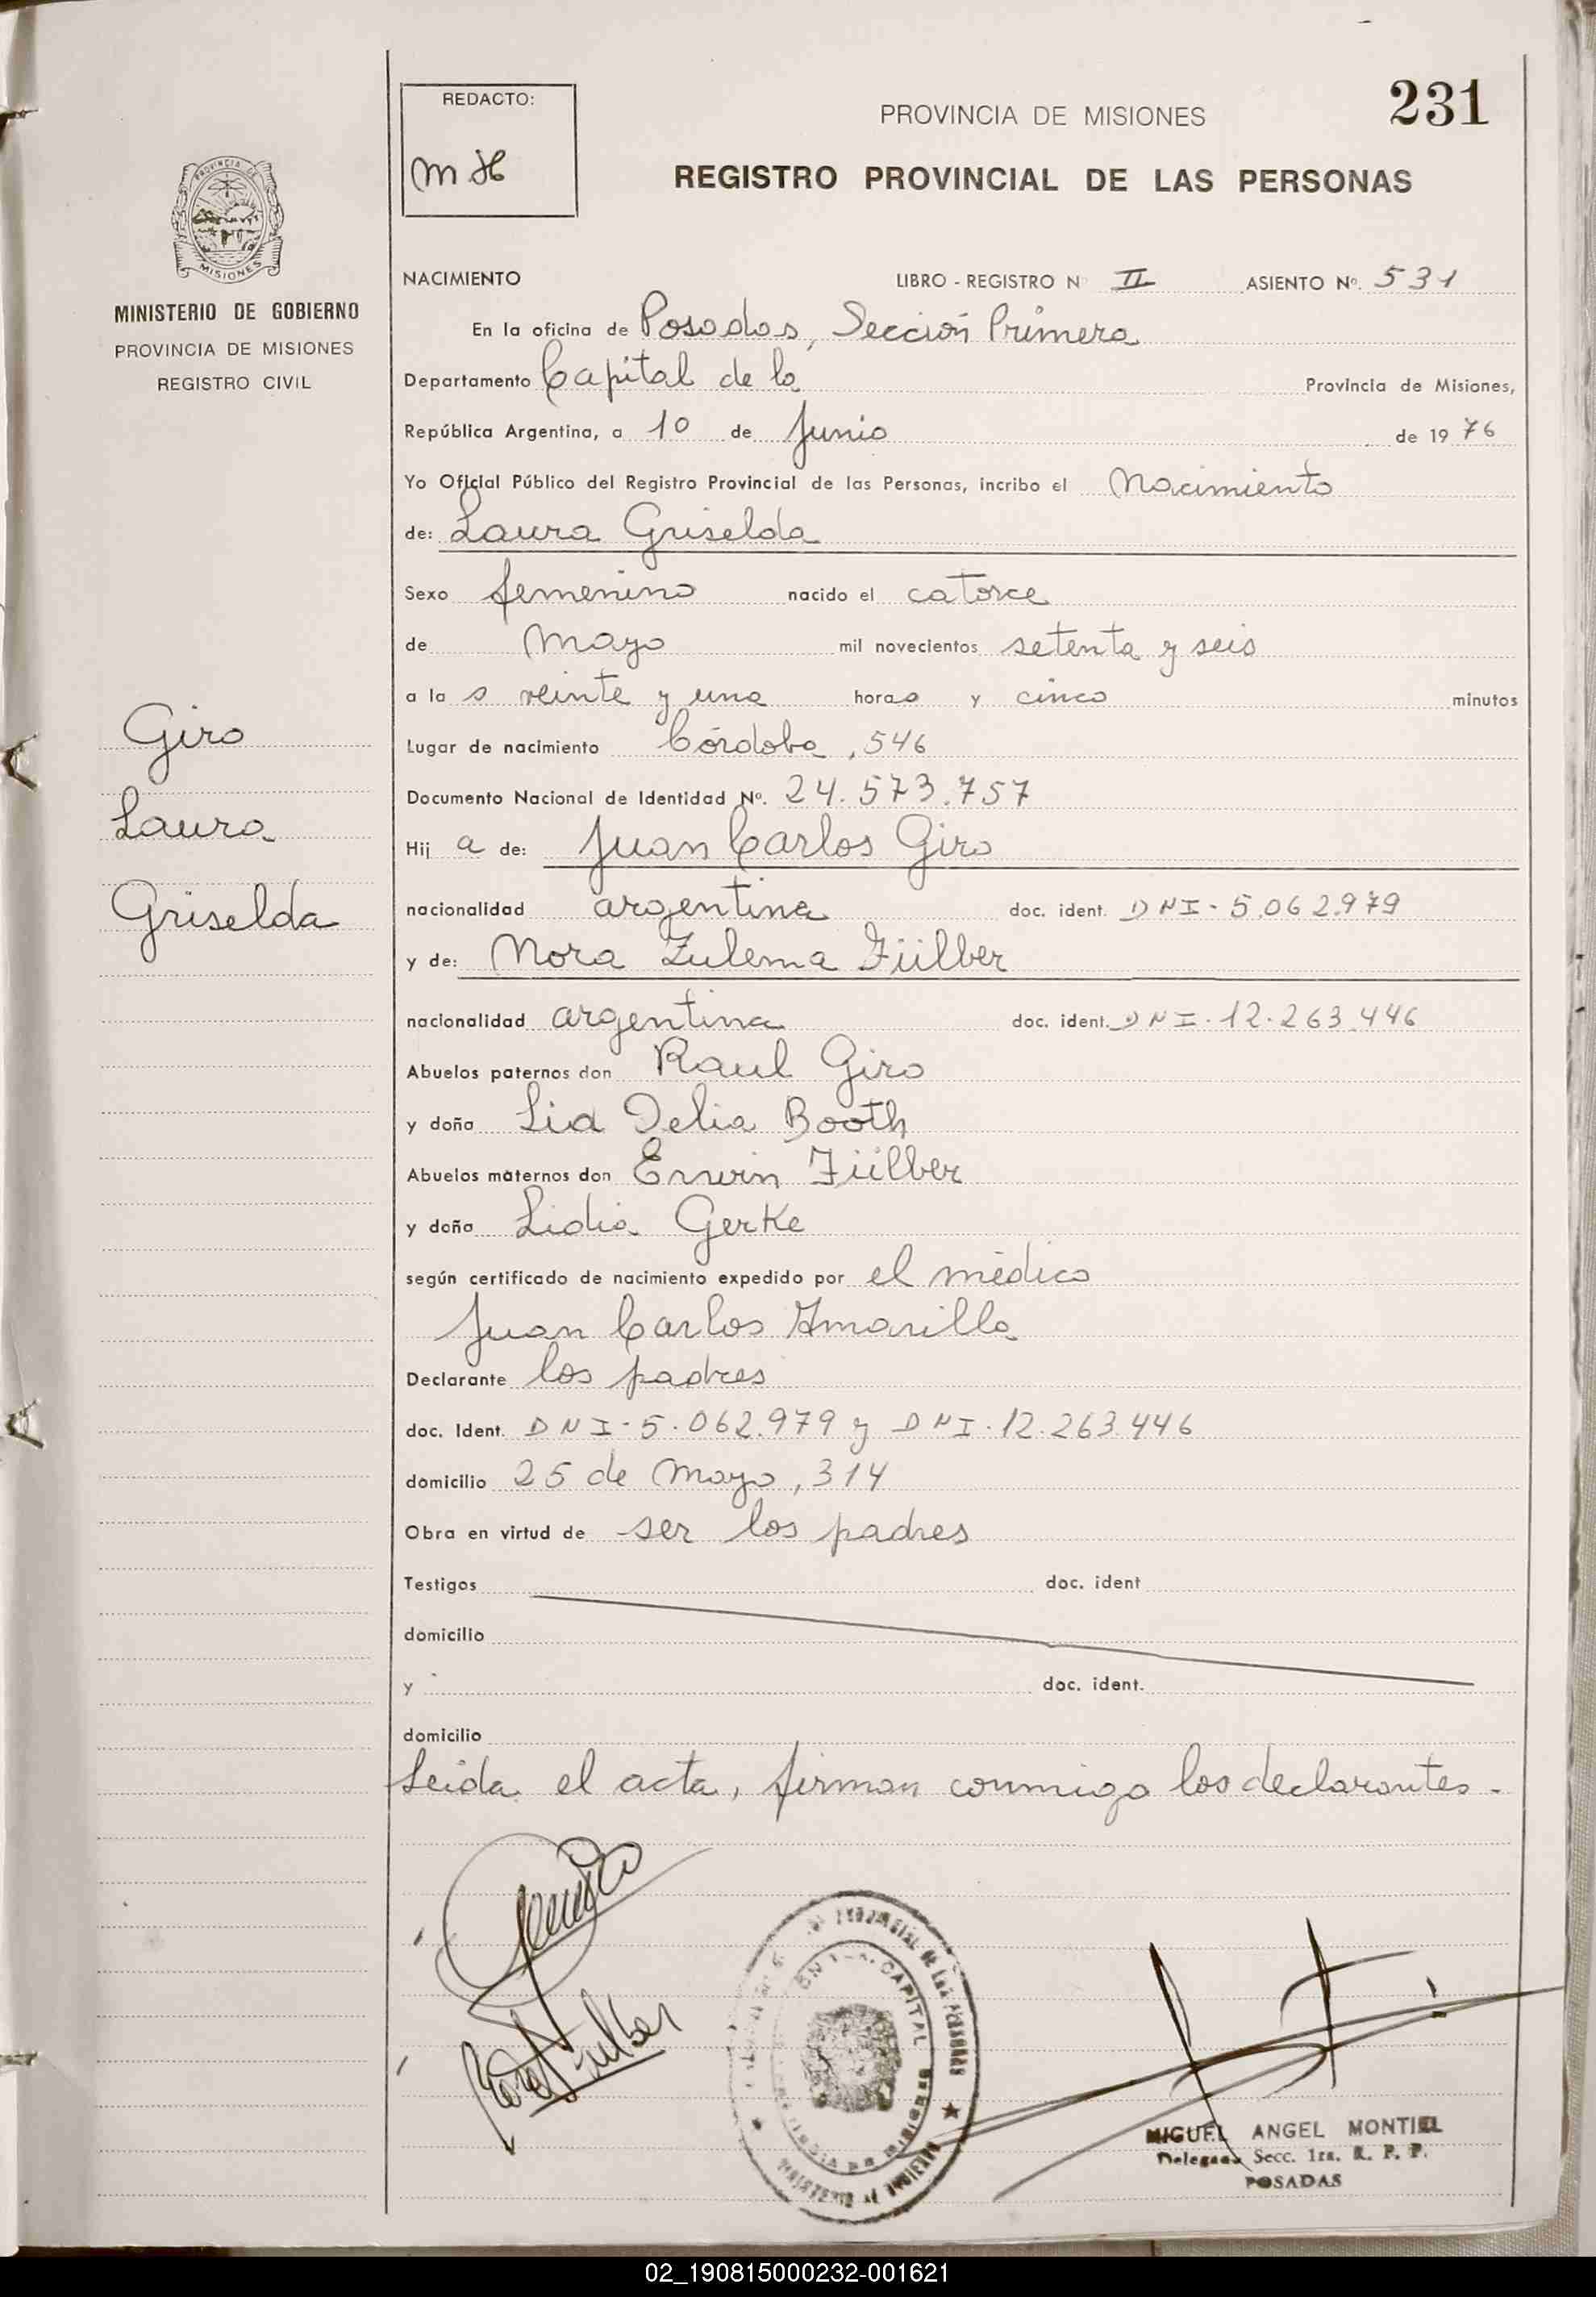 231
REDACTO:
MH
PROVINCIA DE MISIONES
REGISTRO PROVINCIAL DE LAS PERSONAS
PROVINCIA DE
MISIONES
MINISTERIO DE GOBIERNO
PROVINCIA DE MISIONES
REGISTRO CIVIL
Giro
Laura
Griselda
NACIMIENTO LIBRO - REGISTRO Nº II ASIENTO Nº. 531
En la oficina de Posadas, Sección Primera
Departamento Capital de la Provincia de Misiones,
República Argentina, a 10 de Junio de 1976
Yo Oficial Público del Registro Provincial de las Personas, incribo el Nacimiento
de: Laura Griselda
Sexo femenino nacido el catorce
de Mayo mil novecientos setenta y seis
a la s veinte y una horas y cinco minutos
Lugar de nacimiento Córdoba, 546
Documento Nacional de Identidad Nº. 24.573.757
Hij a de: Juan Carlos Giro
nacionalidad argentina doc. ident. DNI - 5.062.979
y de: Nora Zulema Fülber
nacionalidad argentina doc. ident. DNI. 12.263.446
Abuelos paternos don Raul Giro
y doña Lia Delia Booth
Abuelos maternos don Erwin Fülber
y doña Lidia Gerke
según certificado de nacimiento expedido por el médico
Juan Carlos Amarilla
Declarante los padres
doc. Ident. DNI - 5.062.979 y DNI. 12.263.446
domicilio 25 de Mayo, 314
Obra en virtud de ser los padres
Testigos doc. ident
domicilio
y doc. ident.
domicilio
Leida el acta, firman conmigo los declarantes.-
Nora Fülber
CAPITAL
MIGUEL ANGEL MONTIEL
Delegado Secc. 1ra. R. P. P.
POSADAS
02_190815000232-001621